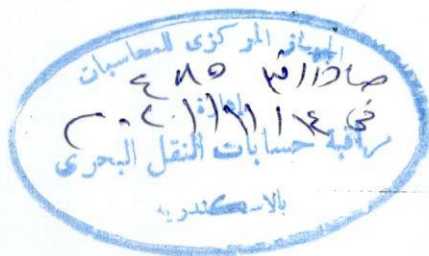 الجهاز المركزى للمحاسبات
صادر رقم ٤٨٥
فى ١٤
مراقبة حسابات النقل البحرى
بالاسكندرية